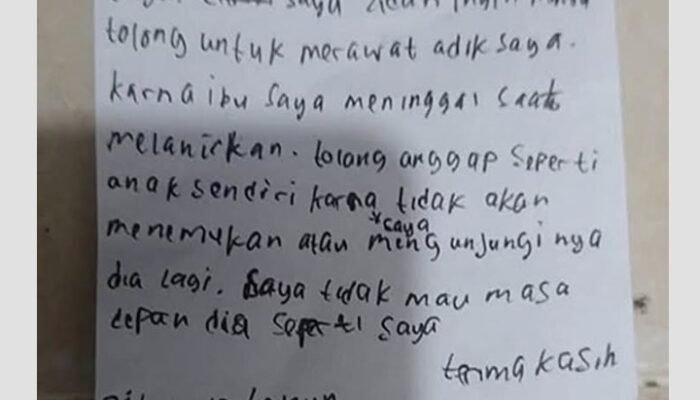 saya
tolong untuk merawat adik saya.
karna ibu saya meninggal saat
melanirkan. tolong anggap seperti
anak sendiri karna tidak akan
*saya
menemukan atau mengunjungi nya
dia lagi. saya tidak mau masa
depan dia seperti saya
terma kasih